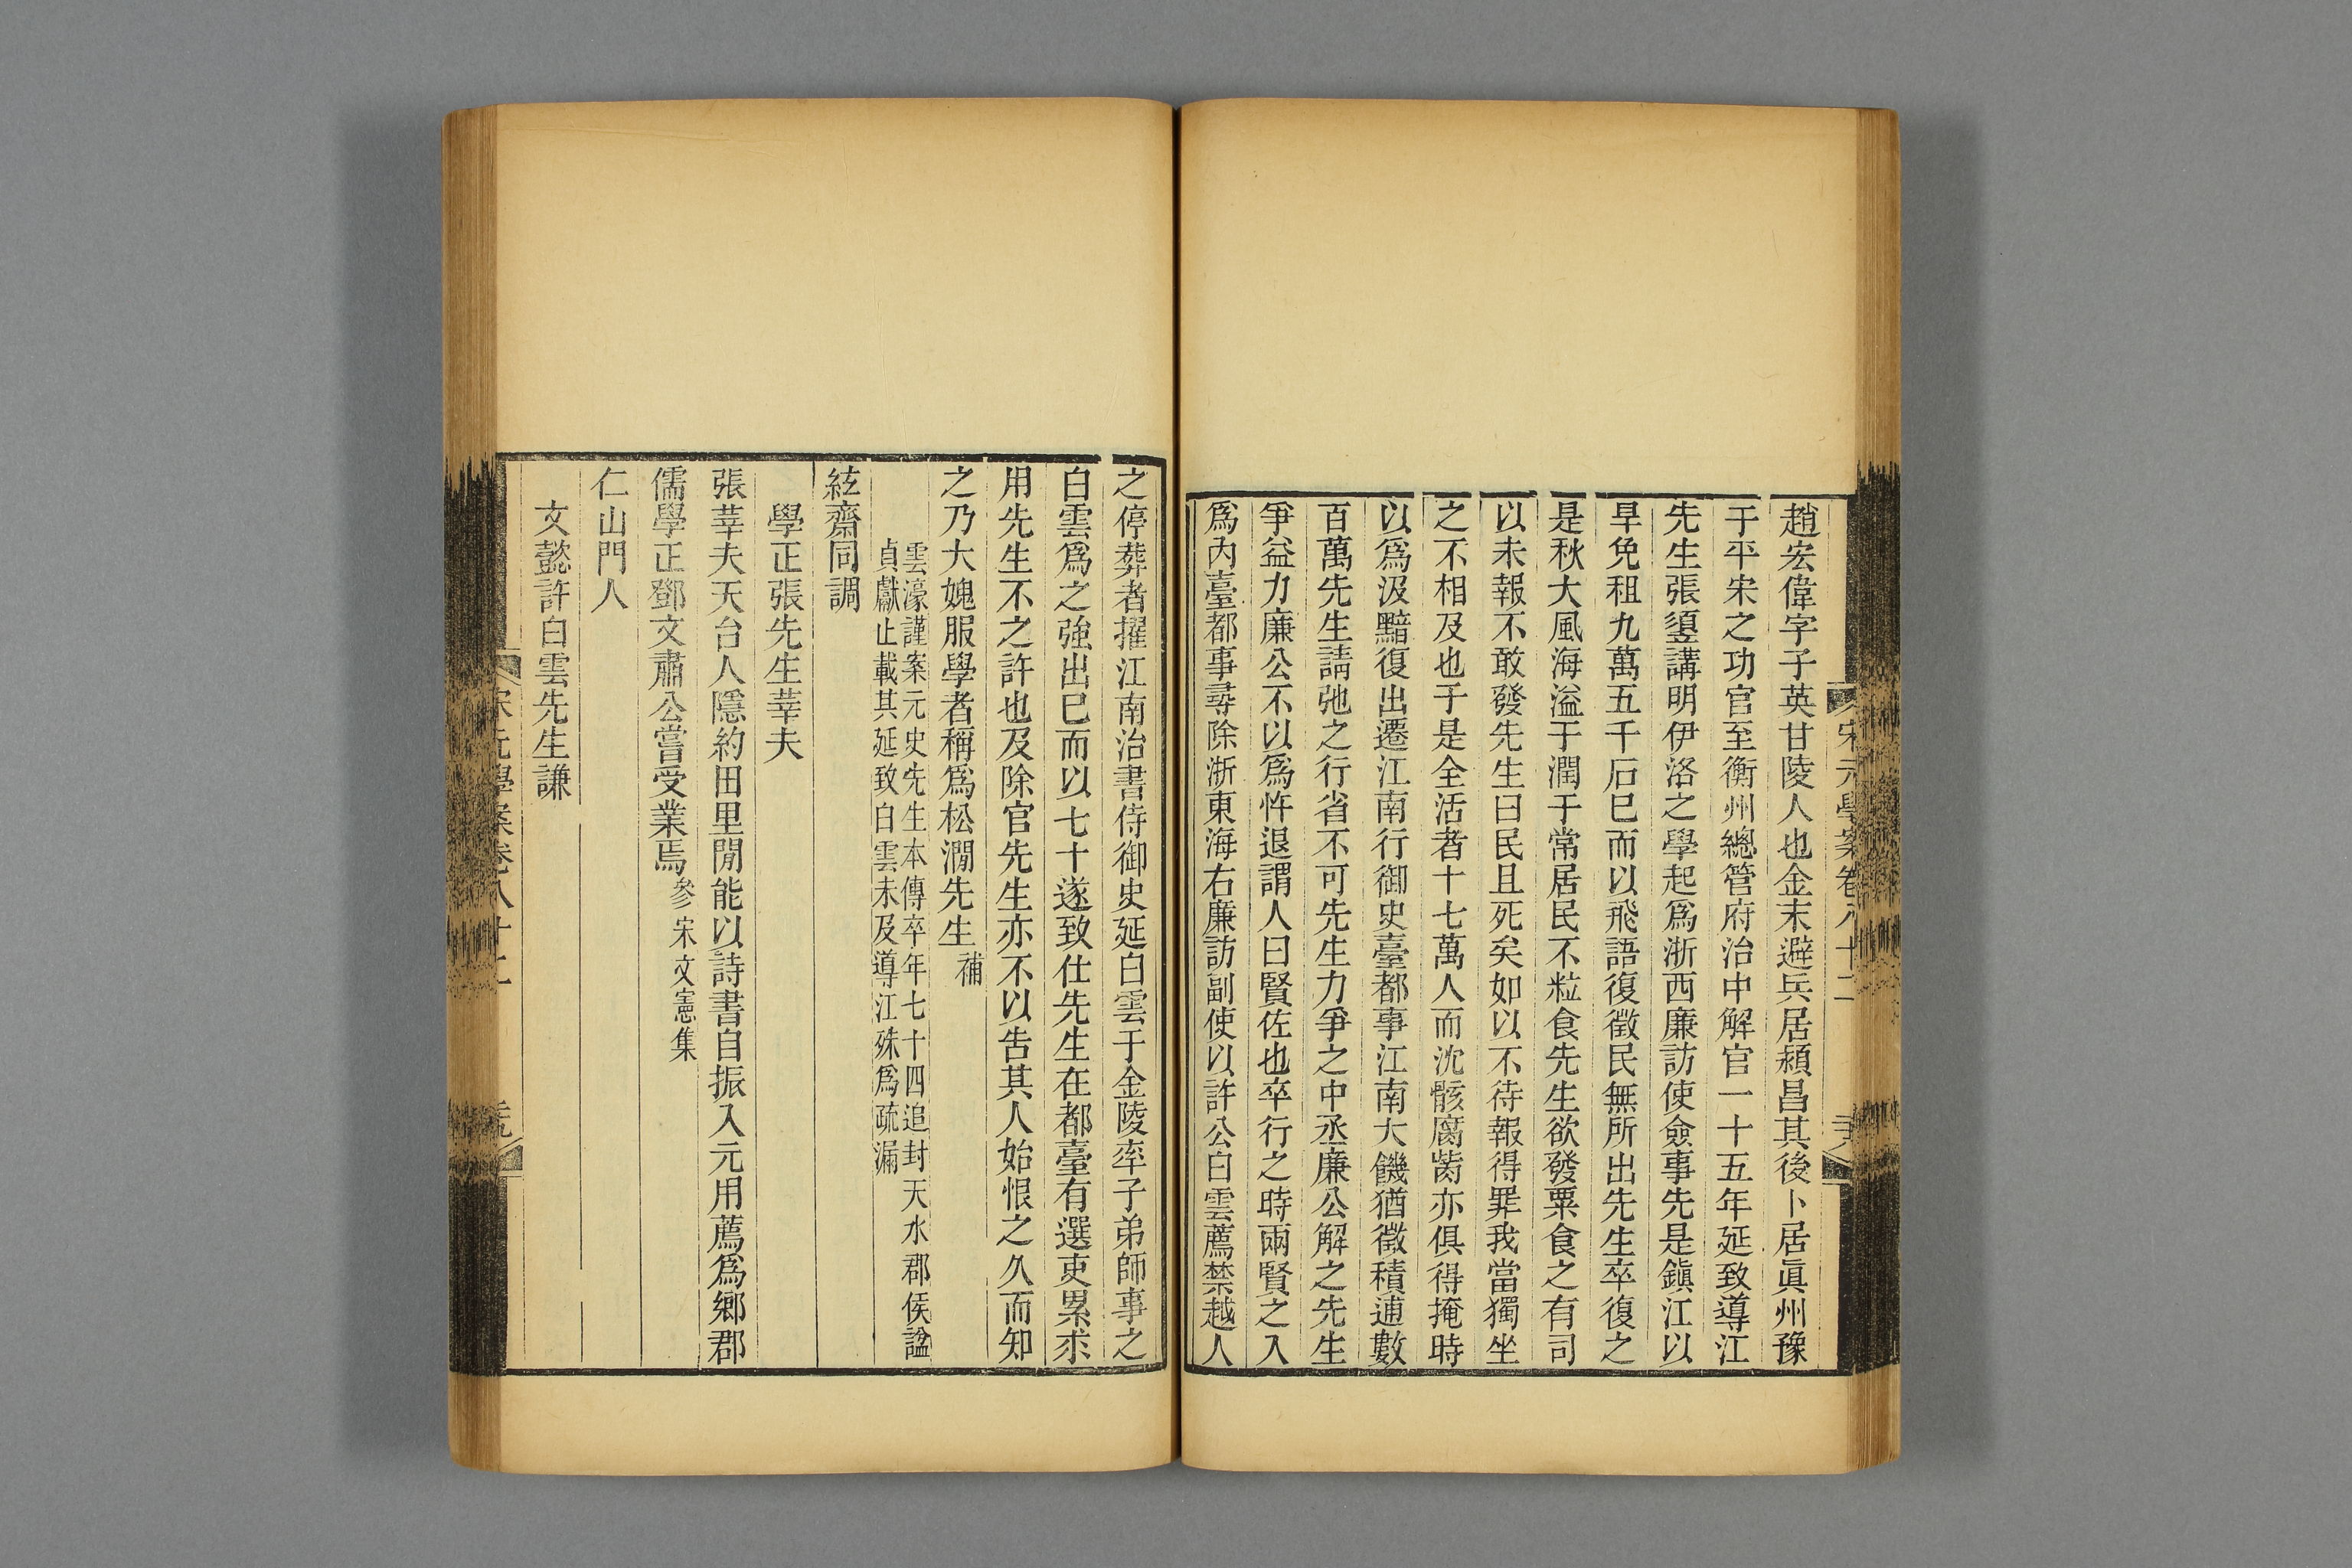 趙宏偉字子英甘陵人也金末避兵居潁昌其後卜居眞州豫
于平宋之功官至衡州總管府治中解官一十五年延致導江
先生張𩓣講明伊洛之學起爲浙西廉訪使僉事先是鎭江以
旱免租九萬五千石巳而以飛語復徵民無所出先生卒復之
是秋大風海溢于潤于常居民不粒食先生欲發粟食之有司
以未報不敢發先生曰民且死矣如以不待報得罪我當獨坐
之不相及也于是全活者十七萬人而沈骸腐胔亦俱得掩時
以爲汲黯復出遷江南行御史臺都事江南大饑猶徵積逋數
百萬先生請弛之行省不可先生力爭之中丞廉公解之先生
爭益力廉公不以爲忤退謂人曰賢佐也卒行之時兩賢之入
爲內臺都事尋除浙東海右廉訪副使以許公白雲薦禁越人
之停葬者擢江南治書侍御史延白雲于金陵率子弟師事之
白雲爲之強出巳而以七十遂致仕先生在都臺有選吏累求
用先生不之許也及除官先生亦不以告其人始恨之久而知
之乃大媿服學者稱爲松澗先生補
雲濠謹案元史先生本傳卒年七十四追封天水郡侯諡
貞獻止載其延致白雲未及導江殊爲疏漏
絃齋同調
學正張先生莘夫
張莘夫天台人隱約田里閒能以詩書自振入元用薦爲鄉郡
儒學正鄧文肅公嘗受業焉參宋文憲集
仁山門人
文懿許白雲先生謙
宋元學案卷八十二